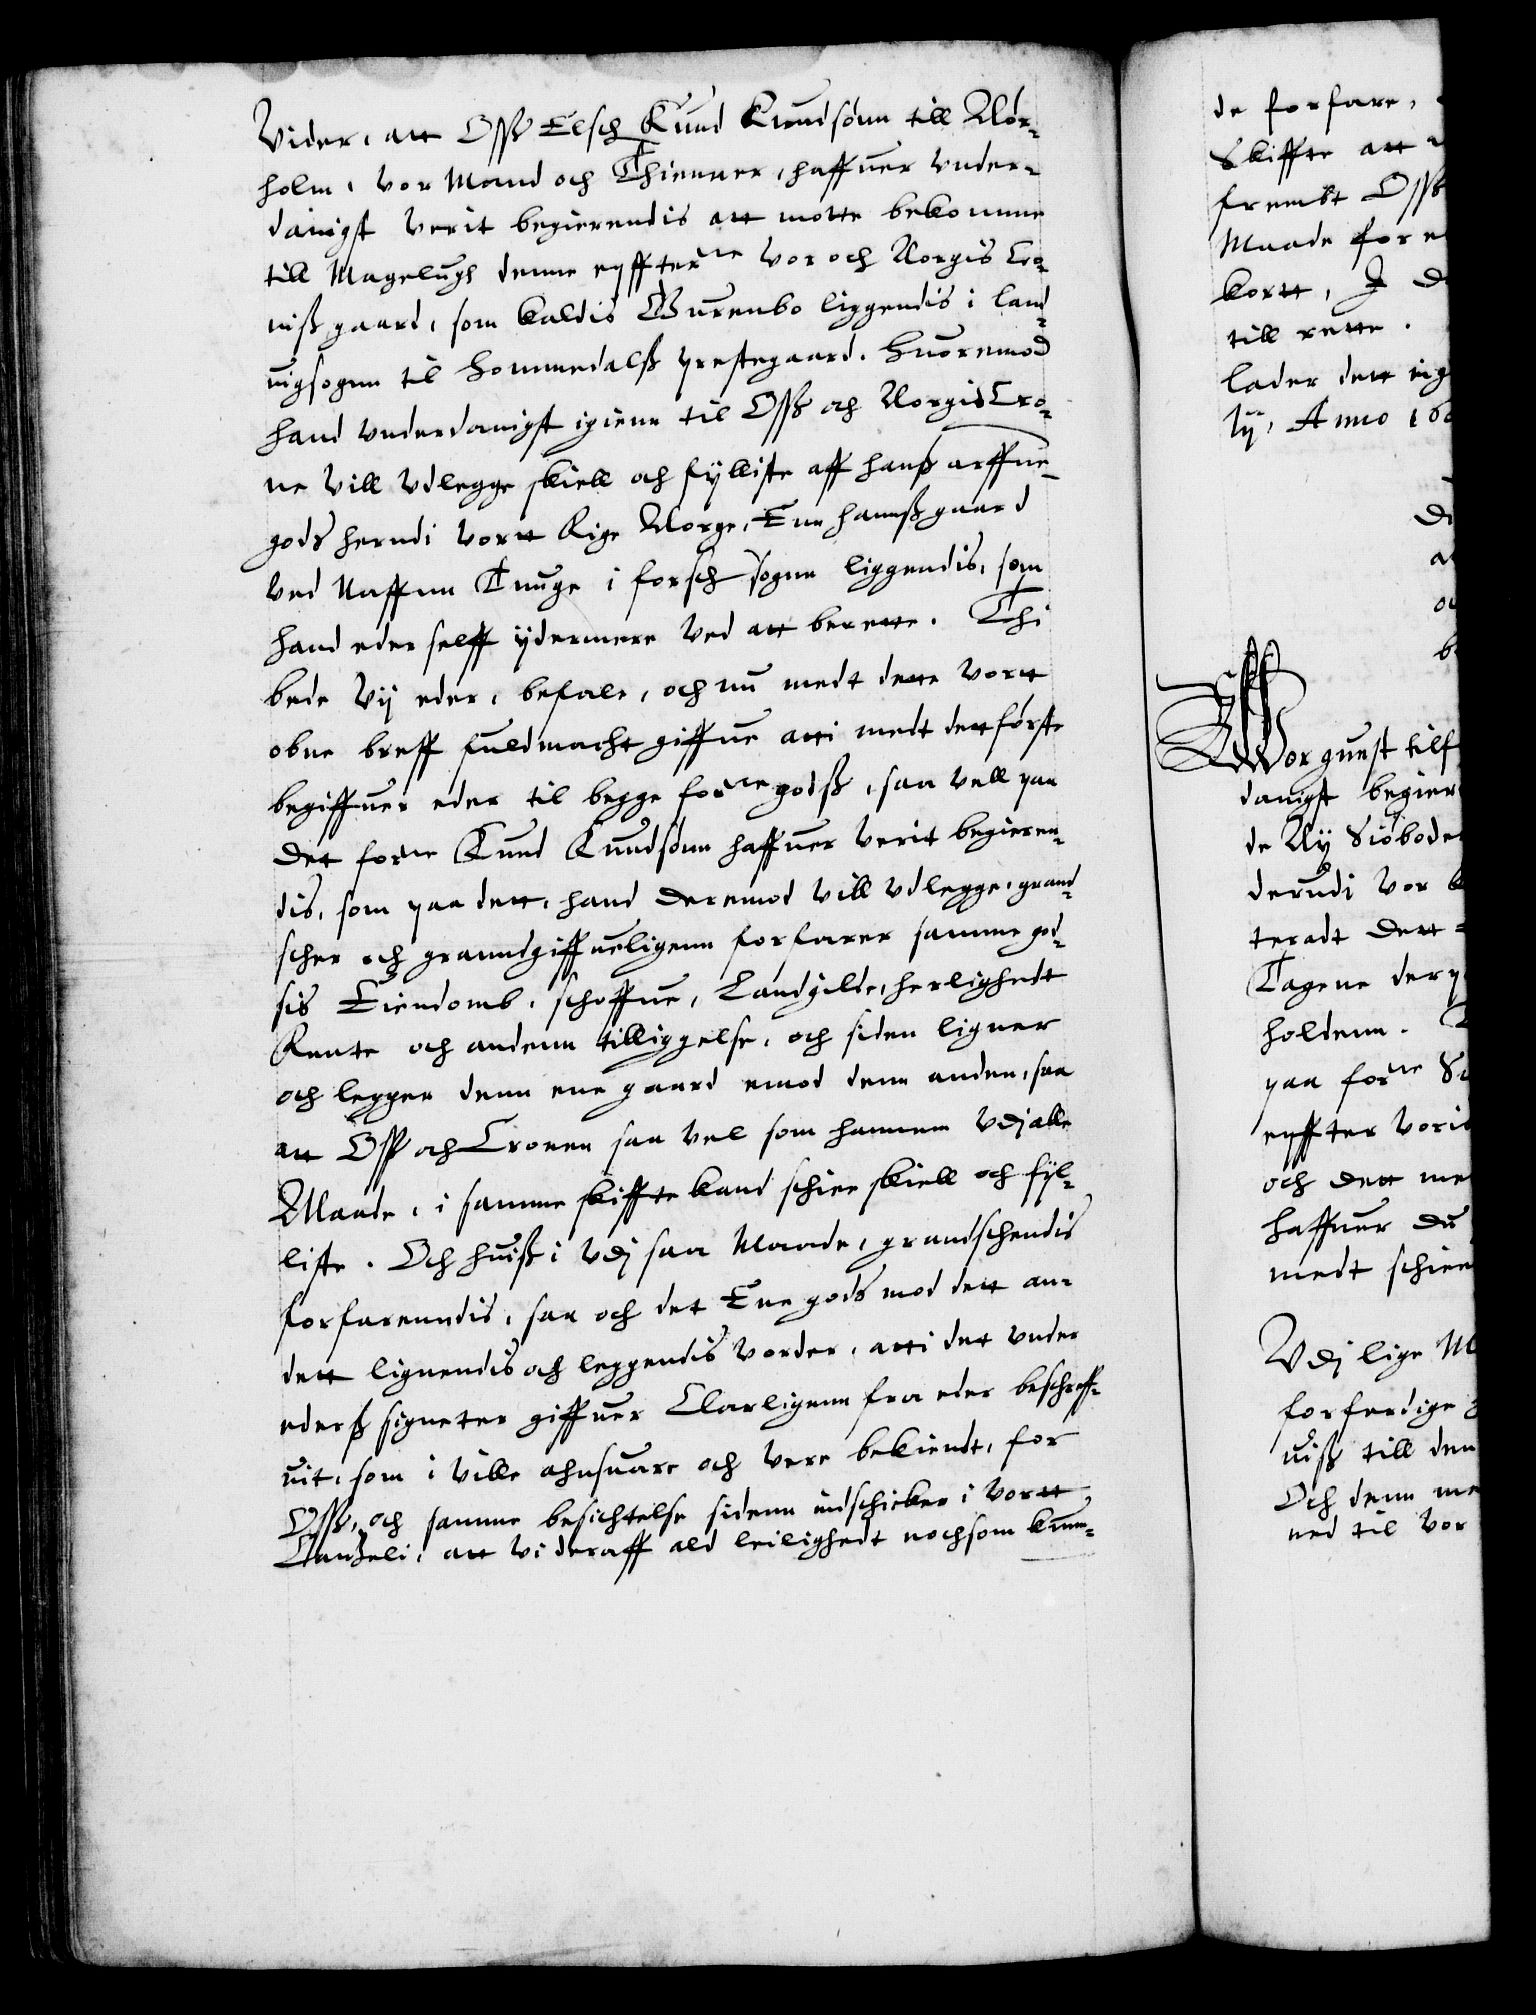 Vider, att Oss Elsch Knud Knudsønn till Nør-
holm, vor Mand och Thienner, haffuer vnder-
danigst verit begierendis att motte bekomme
till Magelugs denne epffterne vor och Norgis Cro-
niß gaard, som kaldis Gurenbo liggendis i land
uigsognn til Hommedalß prestegaard. Huoremod
hand vnderdanigst igienn til Oss och Norgis Cro-
ne vill vdlegge skiell och fylliste aff hanß arffue-
gods herudi vortt Rige Norge, Enn hannß gaard
ved Naffnn Tnuge i forsch sogn liggendis, som
hand eder selff ydermere ved att berette. Thi
bede vij eder, befale, och nu medt dette vortt
obne breff fuldmacht giffue atti medt dett første
begiffuer eder til begge forne godß, saa vell paa
Dett forne Knud Knudsønn haffuer verit begieren-
dis, som paa dett, hand deremod vill vdlegge, grand-
scher och granndgiffueligenn forfarer samme god-
sis Eiendomb, schoffue, Landgilde, herlighedt
Rente och andenn tilliggelse, och siden ligner
och legger denn ene gaard emod denn anden, saa
att Oss och Cronen saa vel som hannem vdj alle
Maade, i samme skiffte kand schiee skiell och fyl-
liste. Och huiß i vdj saa Maade, grandschendis
forfarenndis, saa och det Ene gods mod dett an-
dett lignendis och leggendis vorder, atti det vnder
ederß signeter giffuer Clarligenn fra eder beschreff-
uit, som i ville ahnsuare och vere bekiendt, for
Oss, och samme besichtelse sidenn indschicker i vortt
Canzeli, att vi deraff ald leilighedt nochsom kun-
de forfare,
Skiffte att
frembt Oss
Maade for
kortt, I
till rette.
lader dett
lij, Anno
Wor gunst tilf
danigst begier
de Ny Siøbode
derudi vor
teradt Dett
Tagene der
holdenn.
paa forne
epffter voris
och dett me
haffuer du
medt schiee
Vdj lige M
forferdige
uiß till den
Och denn me
ned til vor